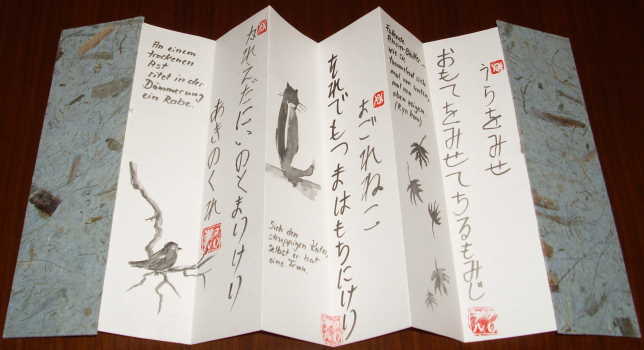 An einem
trockenen
Ast
sitzt in der
Dämmerung
ein Rabe.
かれえだにいのとまりけり
あきのくれ
Sieh den
struppigen Kater,
selbst er hat
eine Frau.
おごれねこ
それでもつまはもちにけり
Fallende
Ahorn-Blätter
wie sie
mal von hinten,
mal von
oben zeigen
(Ryokan)
うらをみせ
おもてをみせてちるもみじ